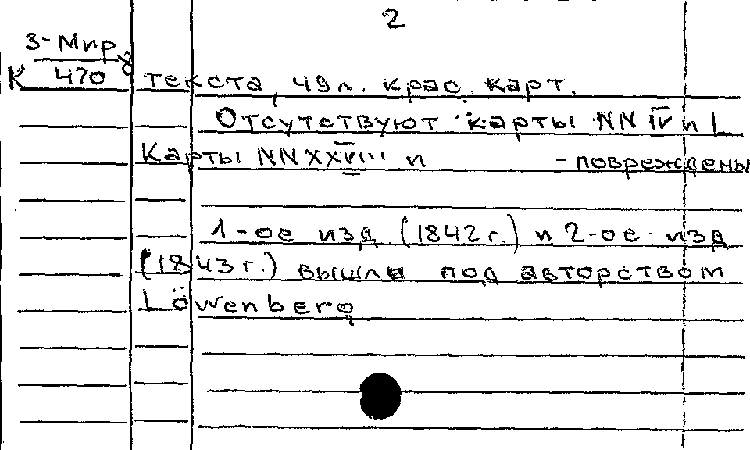 2
3-Мир
К 470 8
текста, 49 л. крас. карт.
Отсутствуют карты NN IV и L
Карты NN XXVIII и - повреждены
1-ое изд. (1842 г.) и 2-ое изд
(1843 г.) вышли под авторством
Löwenberg